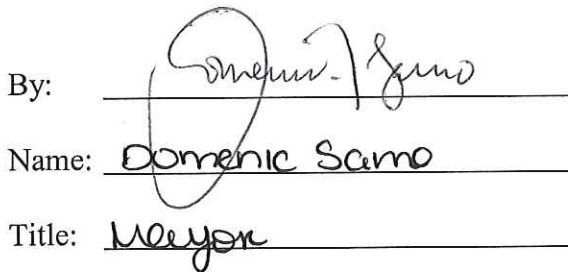 By: Domenic J Sarno
Name: Domenic Sarno
Title: Mayor